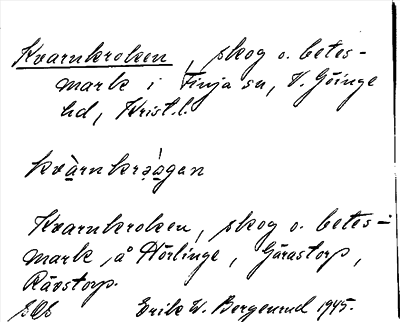 Kvarnkroken, skog o. betes-
mark i Finja sn, V. Göinge
hd, Krist. l.
kvàrnkrəàgan
Kvarnkroken, skog o. betes-
mark, å Hörlinge, Gårastorp,
Rävstorp.
Erik W. Bergenrud 1945.